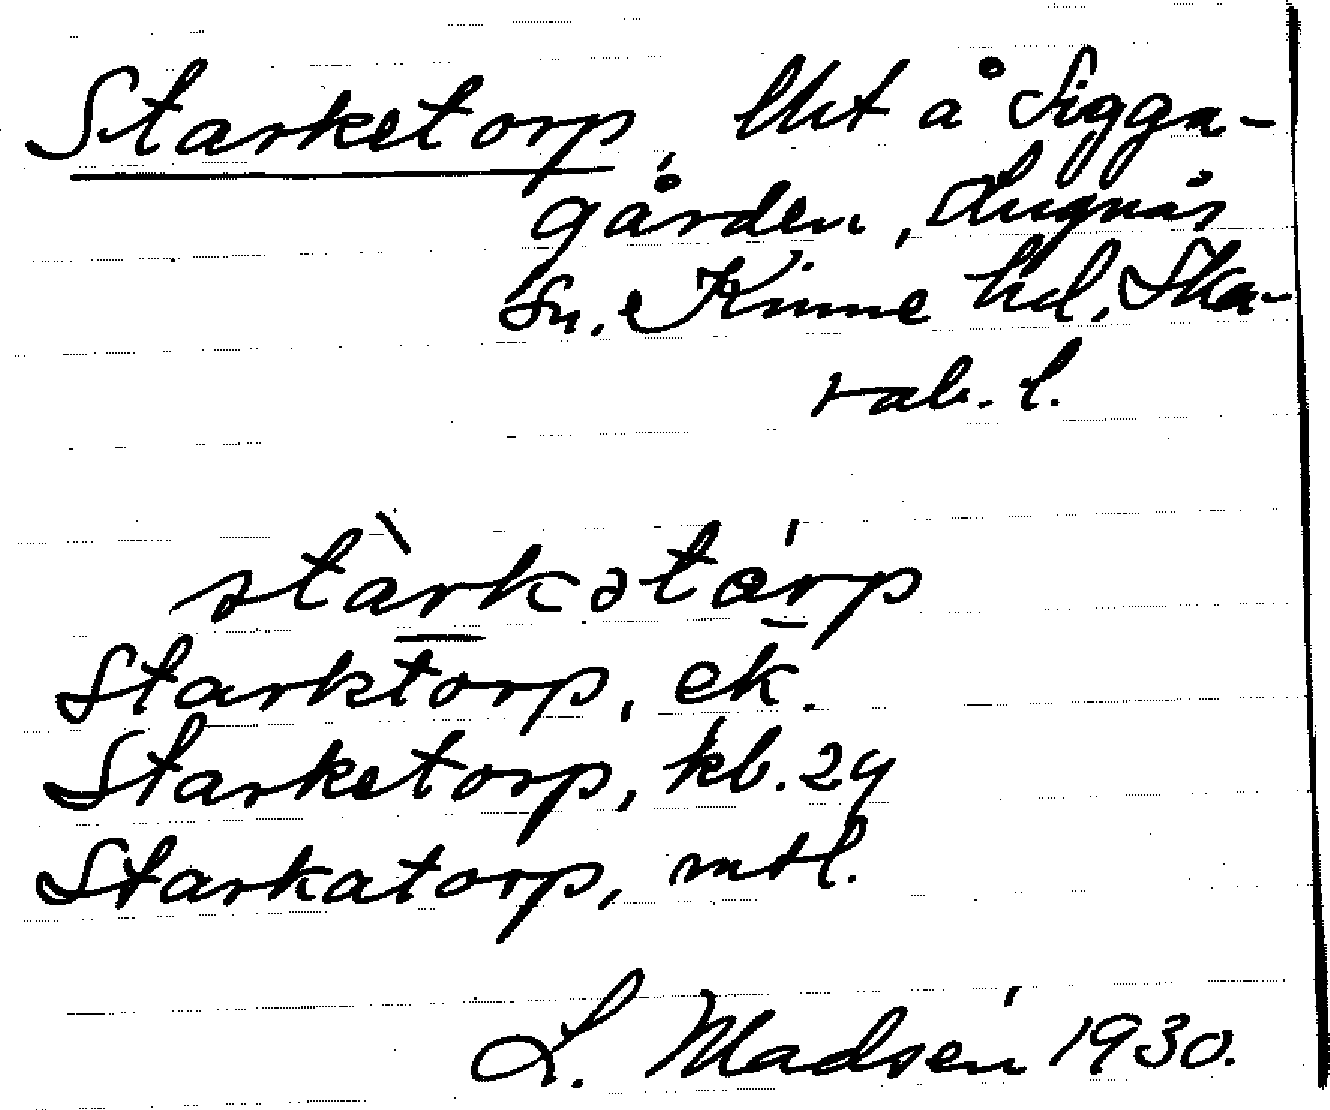 Starketorp, lht å Sigga-
gården, Lugnås
sn. Kinne hd, Ska-
rab. l.
stàrkətárp
Starktorp, ek.
Starketorp, kb. 29
Starkatorp, mtl.
L. Madsén 1930.